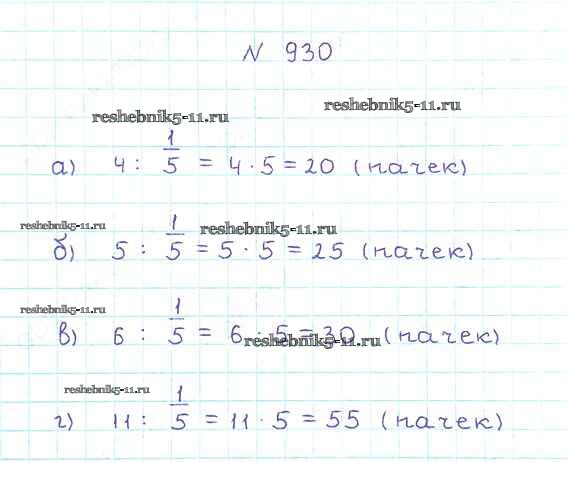 N 930
reshebnik5-11.ru
reshebnik5-11.ru
а) 4 : 1/5 = 4 · 5 = 20 (пачек)
reshebnik5-11.ru
reshebnik5-11.ru
б) 5 : 1/5 = 5 · 5 = 25 (пачек)
reshebnik5-11.ru
в) 6 : 1/5 = 6 · 5 = 30 (пачек)
reshebnik5-11.ru
reshebnik5-11.ru
г) 11 : 1/5 = 11 · 5 = 55 (пачек)